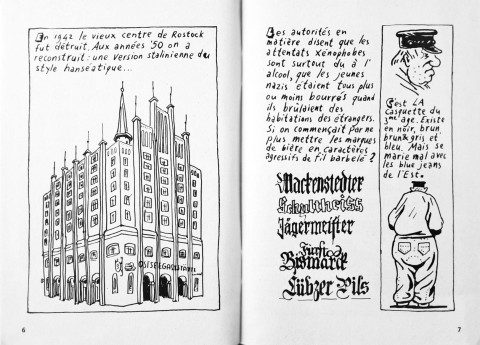 En 1942 le vieux centre de Rostock
fut détruit. Aux années '50 on a
reconstruit: une version stalinienne du
style hanséatique...
OSTSEEGASTSTÄTTE
6
Les autorités en
matière disent que les
attentats xénophobes
sont surtout du a l'
alcool, que les jeunes
nazis étaient tous plus
ou moins bourrés quand
ils brûlaient des
habitations des étrangers.
Si on commençait par ne
plus mettre les marques
de bière en caractères
agressifs de fil barbelé?
Mackenstedter
Schultheiss
Jägermeister
Fürst
Bismarck
Lübzer Pils
C'est LA
Casquette du
3me age. Existe
en noir, brun,
brun&gris et
bleu. Mais se
marie mal avec
les blue jeans
de l'Est.
7